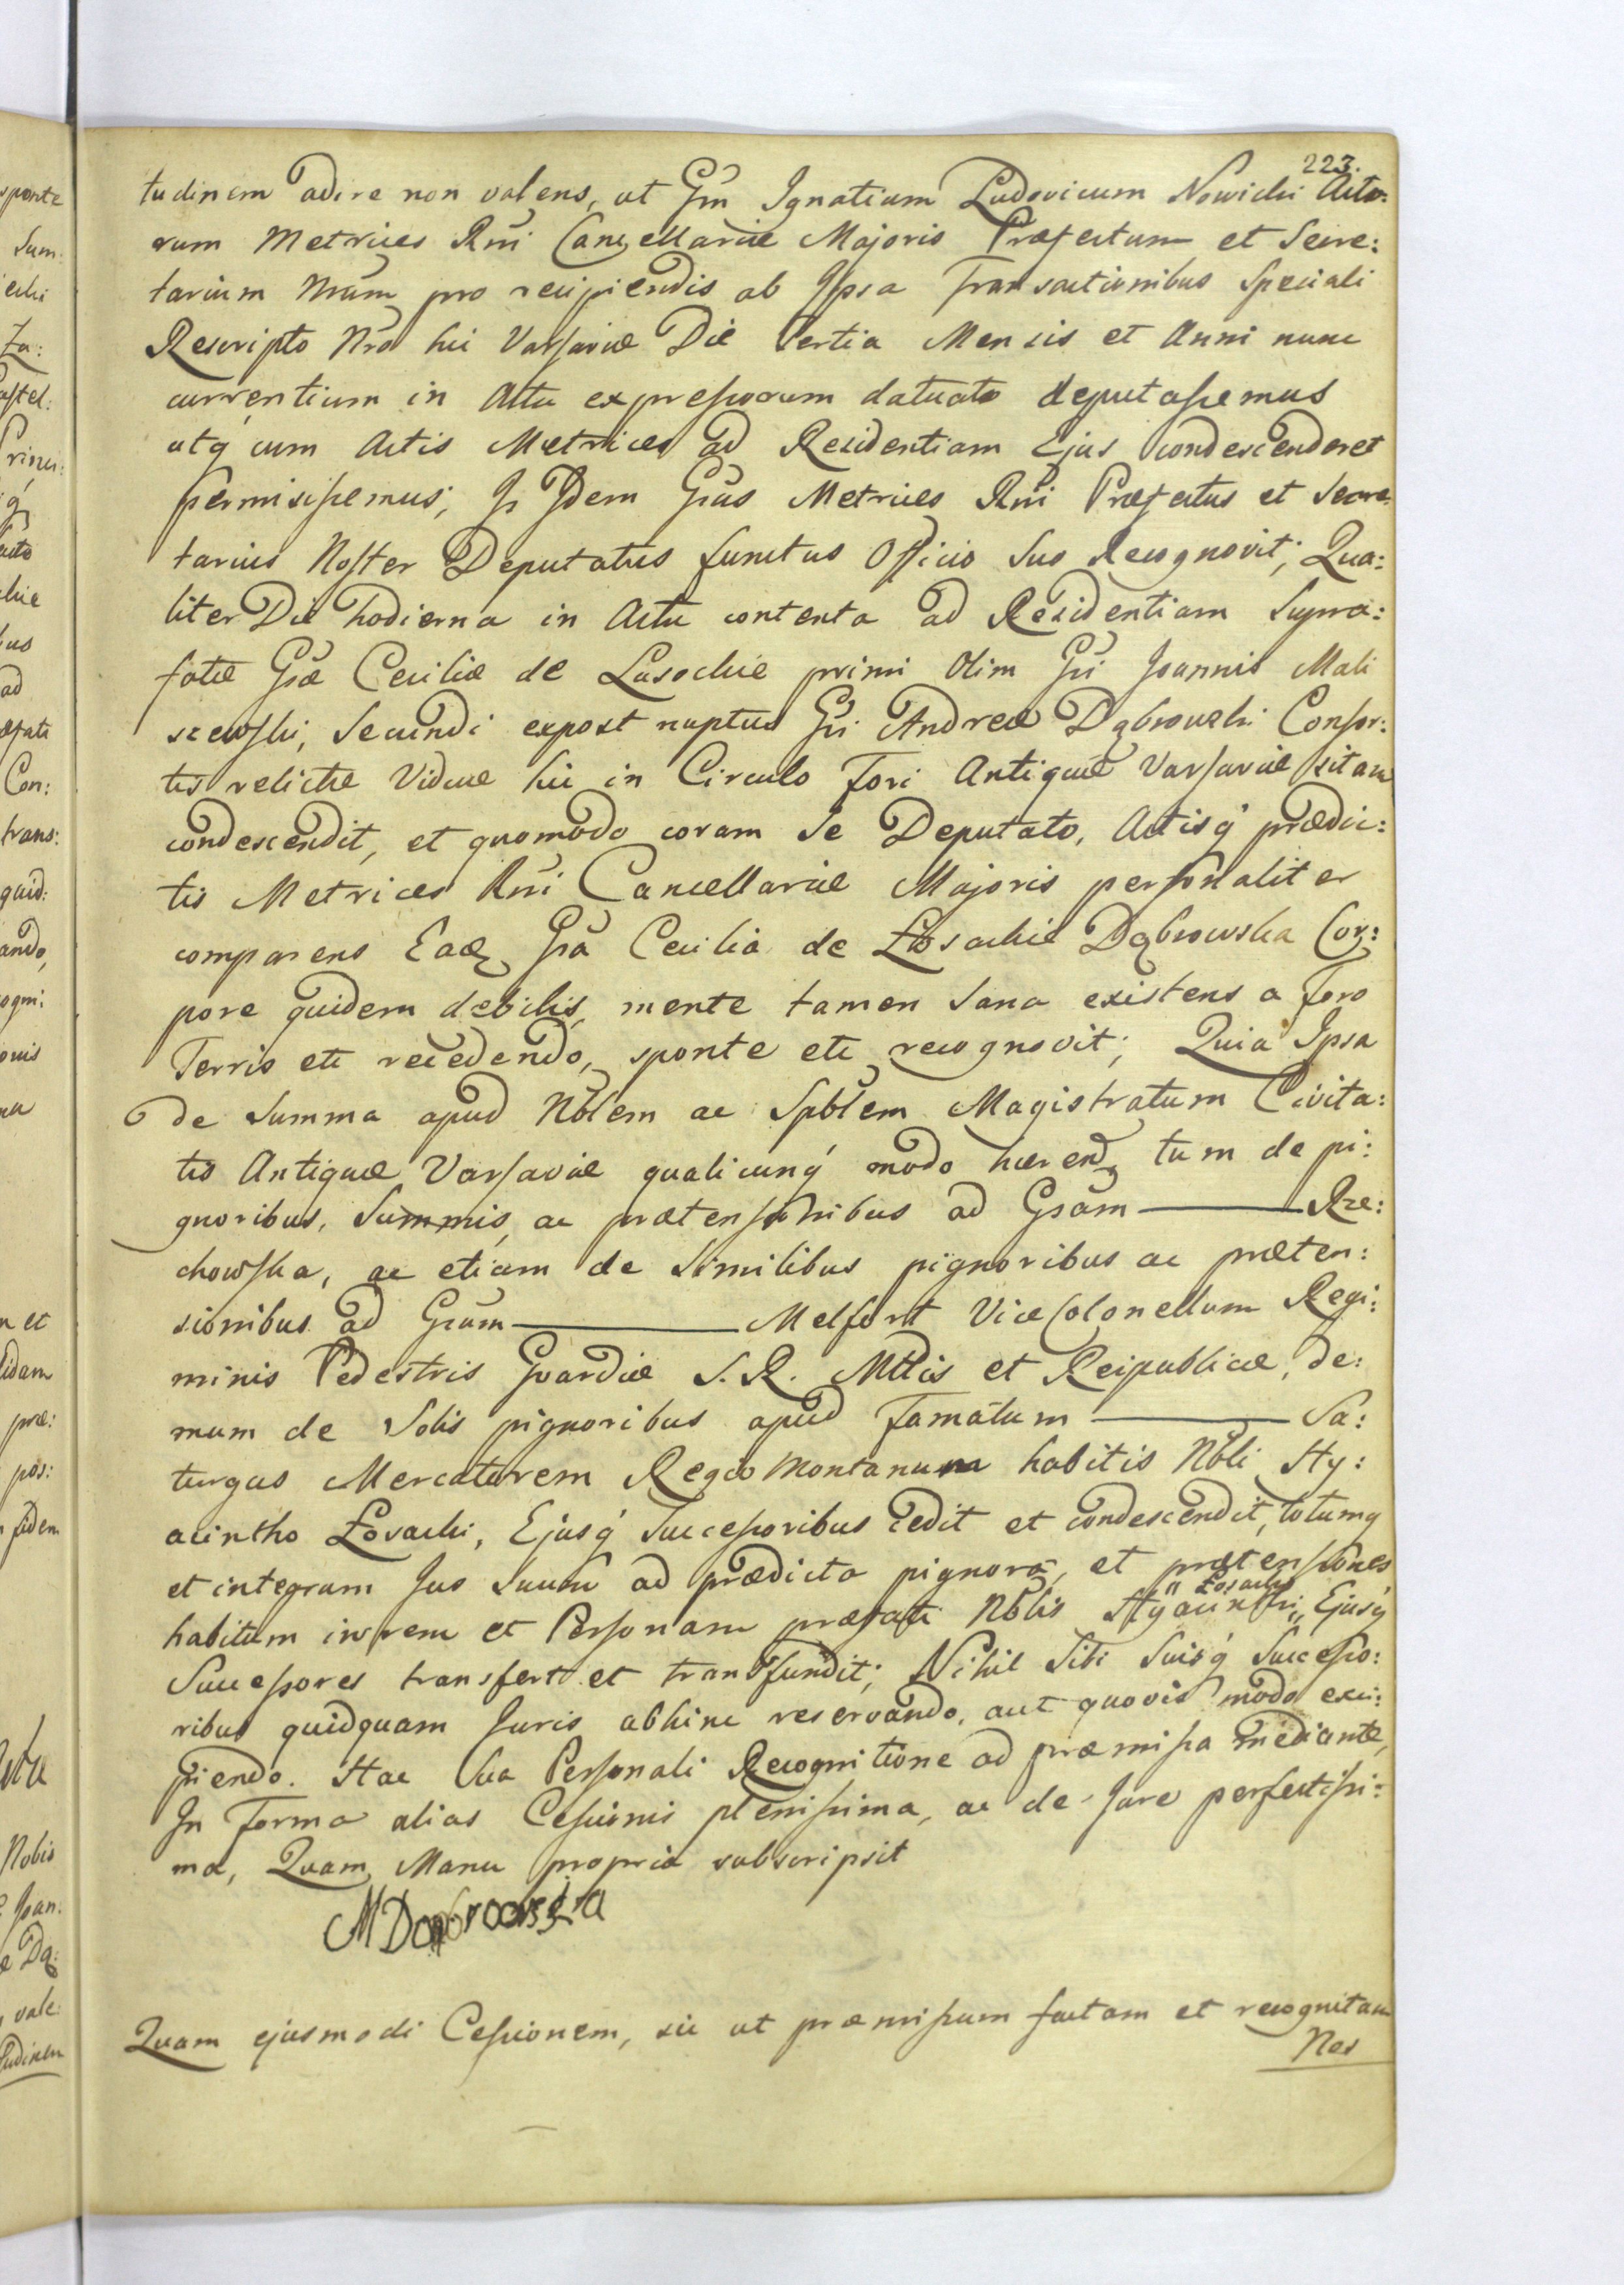 223.
tudinem adire non valens, ut Gsm Ignatium Ludovicum Nowicki Acto:
rum Metrices Rni Cancellariæ Majoris Præfectum et Secre:
tarium Nrum pro recipiendis ab Ipsa Transactionibus Speciali
Rescripto Nro hic Varsaviæ Die Tertia Mensis et Anni nunc
currentium in Actu expressorum datuato deputassemus
utq́ cum Actis Metrices ad Residentiam Ejus condescenderet
permisissemus; Is Idem Gsus Metrices Rni Præfectus et Secre
tarius Noster Deputatus functus Officio Suo Recognovit; Qua:
liter Die hodierna in Actu contenta ad Residentiam Supra:
fatæ Gsæ Ceciliæ de Lasockie primi Olim Gsi Joannis Mali
szewski, Secundi expost nuptus Gsi Andreæ Dąbrowski Consor:
tis relictæ Viduæ hic in Circulo Fori Antiquæ Varsaviæ sitam
condescendit, et quomodo coram Se Deputato, Actisq́ prædic:
tis Metrices Rni Cancellariæ Majoris personaliter
comparens Eadę Gsa Cecilia de Łosockie Dąbrowska Cor:
pore quidem debilis, mente tamen Sana existens a Foro
Terris etc recedendo, sponte etc recognovit; Quia Ipsa
de Summa apud Nblem ac Spblem Magistratum Civita:
tis Antiquæ Varsaviæ qualicunq́ modo hæren̄d tum de pi:
gnoribus, Summis, ac prætensionibus ad Gsam ——— Rze:
chowska, ac etiam de Similibus pignoribus ac præten:
sionibus ad Gsum ——— Melfort Vice Colonellum Regi:
minis Pedestris Gvardiæ S. R. Mttis et Reipublicæ, de:
mum de Solis pignoribus apud Famatum ——— Sa:
turgus Mercatorem Regiomontanum habitis Nbli Hy:
acintho Łosocki, Ejusq́ Successoribus cedit et condescendit, totumq
et integrum Jus Suum ad prædicta pignora, et prætensiones
habitum in rem et Personam præfati Nblis Hyacinthi " Łosocki " Ejusq́
Successores transfert et transfundit; Nihil Sibi Suisq́ Successo:
ribus quidquam Juris abhinc reservando, aut quovis modo exci:
piendo. Hac Sua Personali Recognitione ad præmissa mediante,
In Forma alias Cessionis plenissima, ac de Jure perfectissi:
ma, Quam Manu propria subscripsit
M Dombrowska
Quam ejusmodi Cessionem, sic ut præmissum factam et recognitam
Nos